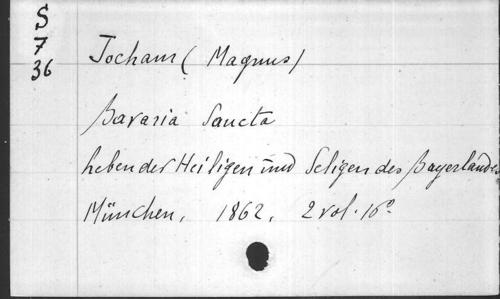 S
7
36
Jocham (Magnus)
Bavaria Sancta
Leben der Heiligen und Seligen des Bayerlandes
München, 1862, 2 vol. 16°